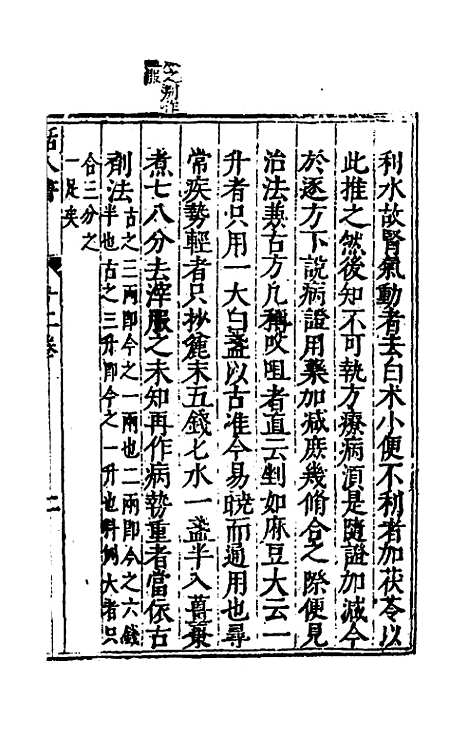 利水故腎氣動者去白术小便不利者加茯苓以
此推之然後知不可執方療病須是隨證加減今
於逐方下說病證用藥加減庶幾脩合之際便見
治法兼古方凡稱㕮咀者直云剉如麻豆大云一
升者只用一大白盞以古准今易曉而通用也尋
常疾勢輕者只抄麄末五錢匕水一盞半入薑棗
煮七八分去滓服之未知再作病勢重者當依古
劑法古之三兩即今之一兩也二兩即今之六錢
半也古之三升即今之一升也料例大者只
合三分之
一足矣
活人書
十二卷
二
之 別作
服